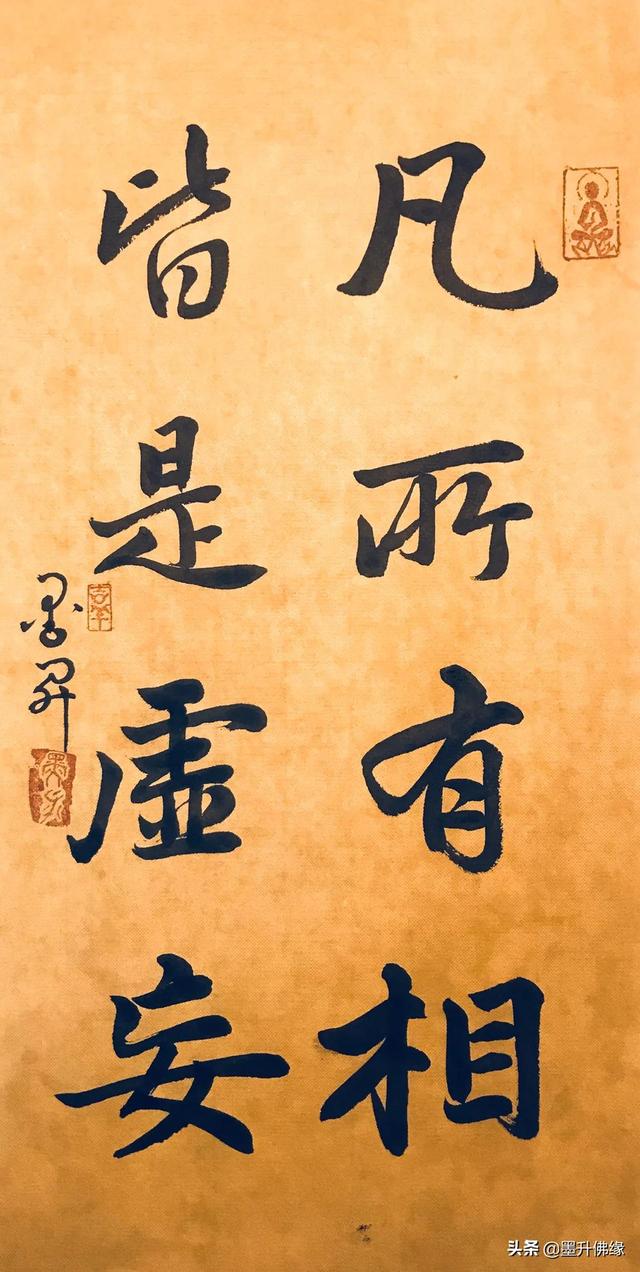 凡所有相
皆是虛妄
墨昇
头条 @墨升佛缘